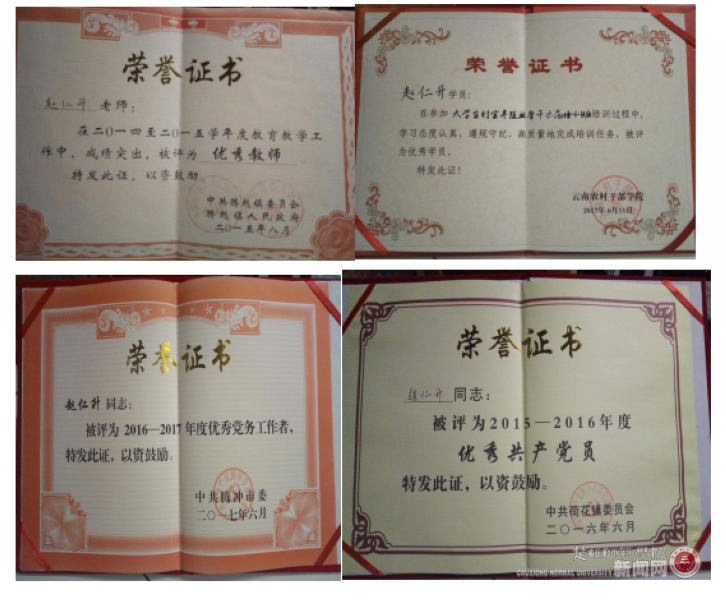 荣誉证书
赵仁升 老师：
在二〇一四至二〇一五学年度教育教学工
作中，成绩突出，被评为 优秀教师
特发此证，以资鼓励。
中共腾越镇委员会
腾越镇人民政府
二〇一五年八月
荣誉证书
赵仁升学员：
在参加 大学生村官 培训过程中，
学习态度认真、遵规守纪、高质量地完成培训任务，被评
为优秀学员。
特发此证！
云南农村干部学院
2017年6月11日
荣誉证书
赵仁升 同志：
被评为 2016—2017 年度优秀党务工作者，
特发此证，以资鼓励。
中共腾冲市委
二〇一七年六月
荣誉证书
赵仁升 同志：
被评为2015—2016年度
优秀共产党员
特发此证，以资鼓励。
中共荷花镇委员会
二〇一六年六月
楚雄师范学院
CHUXIONG NORMAL UNIVERSITY 新闻网